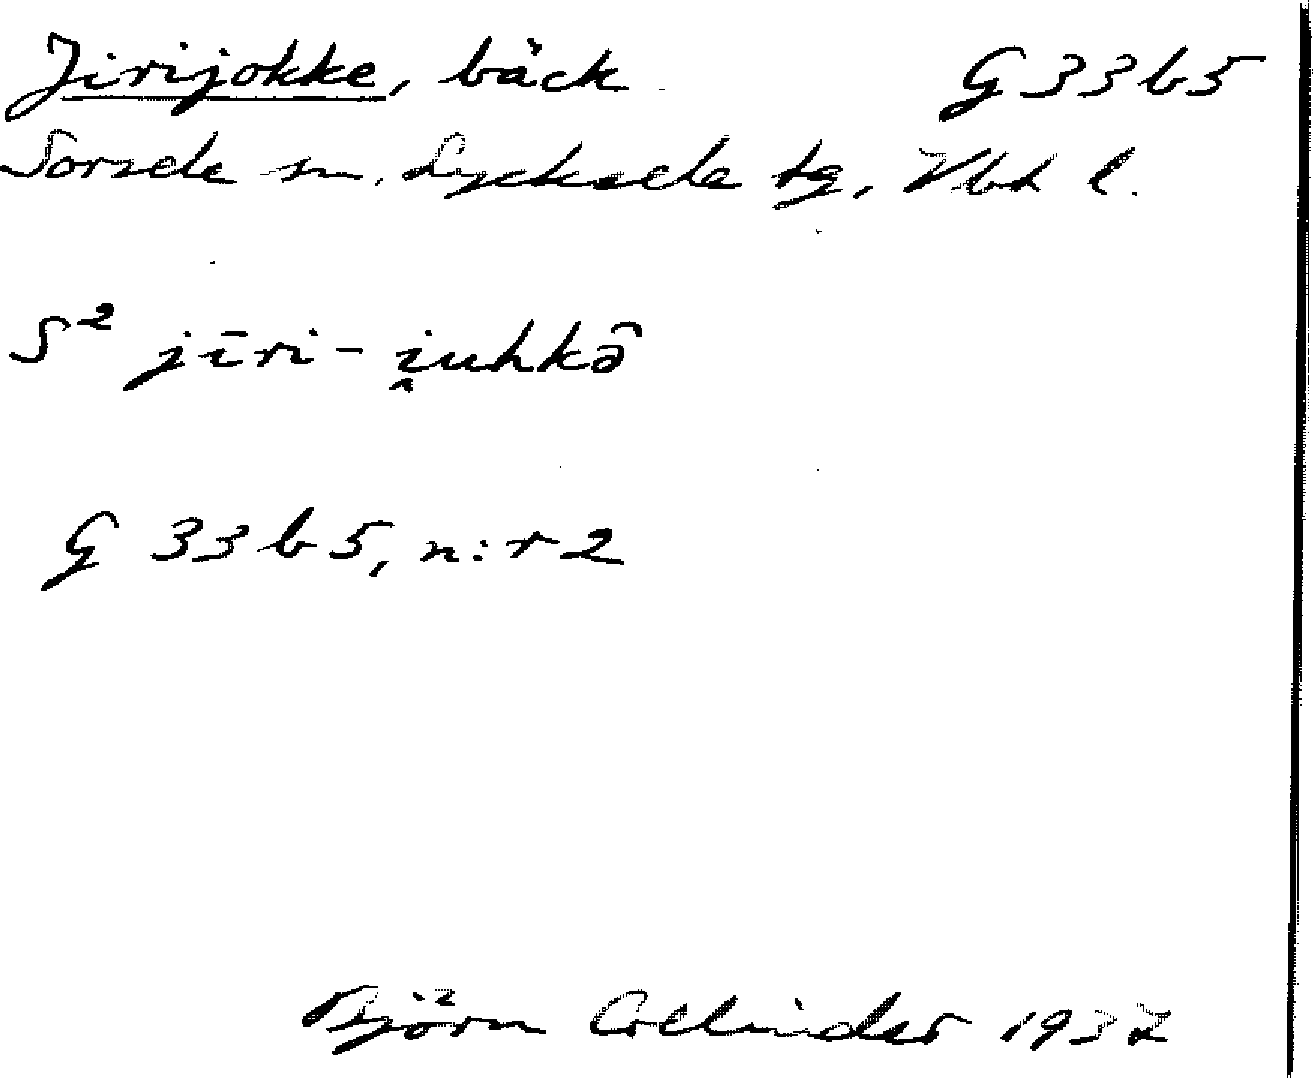 Jirijokke, bäck G 33 b 5
Sorsele sn. Lycksele tg, Vbt l.
S² jīri-i̯uhkə̂
G 33 b 5, n:r 2
Björn Collinder 1937